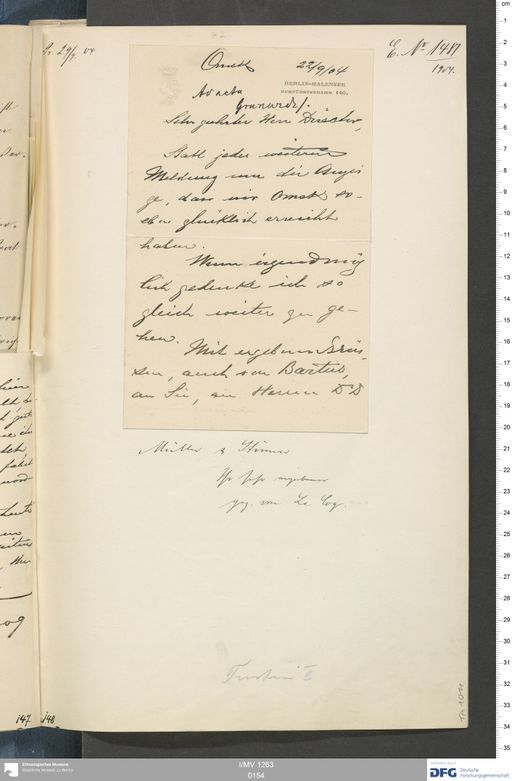 Pr. 29/9. 04
E. No 1487
1904.
Omsk 22/9/04
BERLIN-HALENSEE
KURFÜRSTENDAMM 140.
Ad acta
Grünwedel.
Sehr geehrter Herr Director,
Statt jeder weiteren
Meldung nur die Anzei
ge, dass wir Omsk so-
eben glücklich erreicht
haben.
Wenn irgendmög
lich gedenke ich so
gleich weiter zu ge-
hen.
Mit ergebenen Grüs-
sen, auch von Bartus,
an Sie, an Herren DrDr
Müller & Stönner
Ihr sehr ergebener
gez. von Le Coq.
Turfan II
147
148
I/MV 1263
0154
Ethnologisches Museum
Staatliche Museen zu Berlin
gefördert durch
DFG Deutsche
Forschungsgemeinschaft